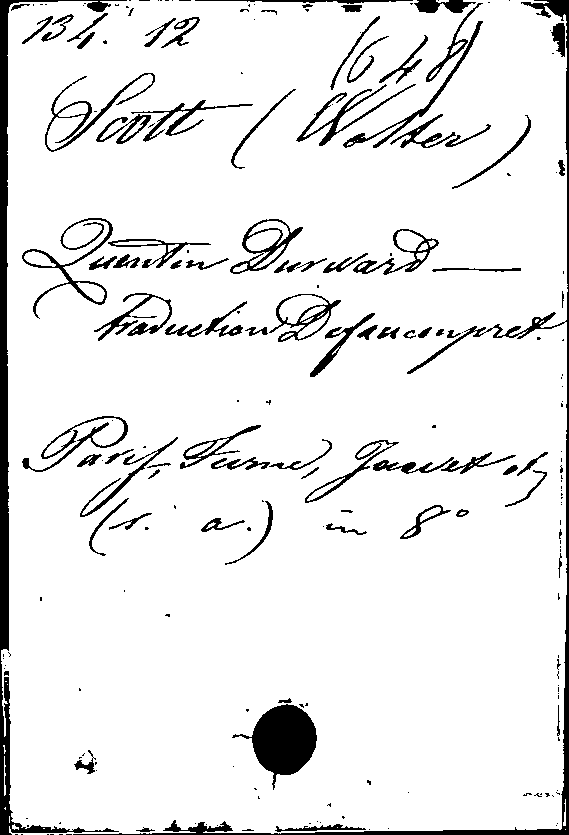 134. 12
(648)
Scott (Walter).
Quentin Durward —
Traduction Defauconpret.
Paris, Furne, Jouvet et
(s. a.) in 8°